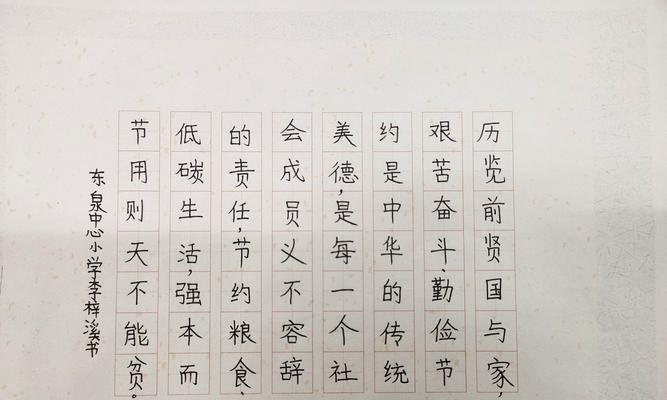 历览前贤国与家，
艰苦奋斗、勤俭节
约是中华的传统
美德，是每一个社
会成员义不容辞
的责任，节约粮食、
低碳生活，强本而
节用则天不能贫。
东泉中心小学李梓溪书